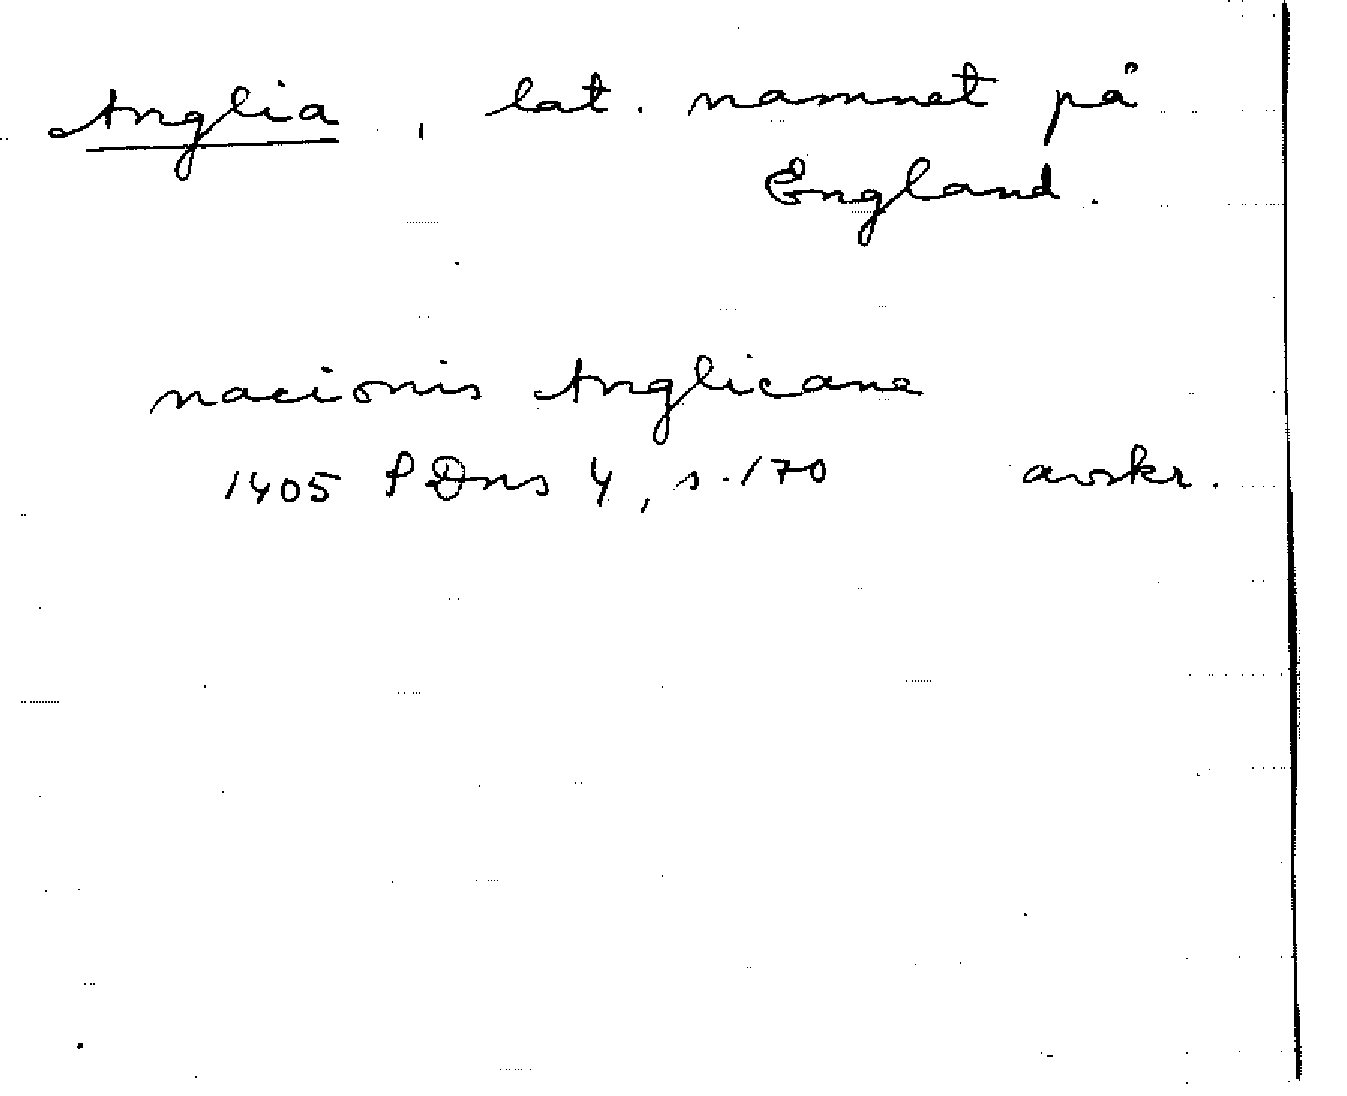 Anglia, lat. namnet på
England.
nacionis Anglicane
1405 PDns 4, s. 170 avskr.